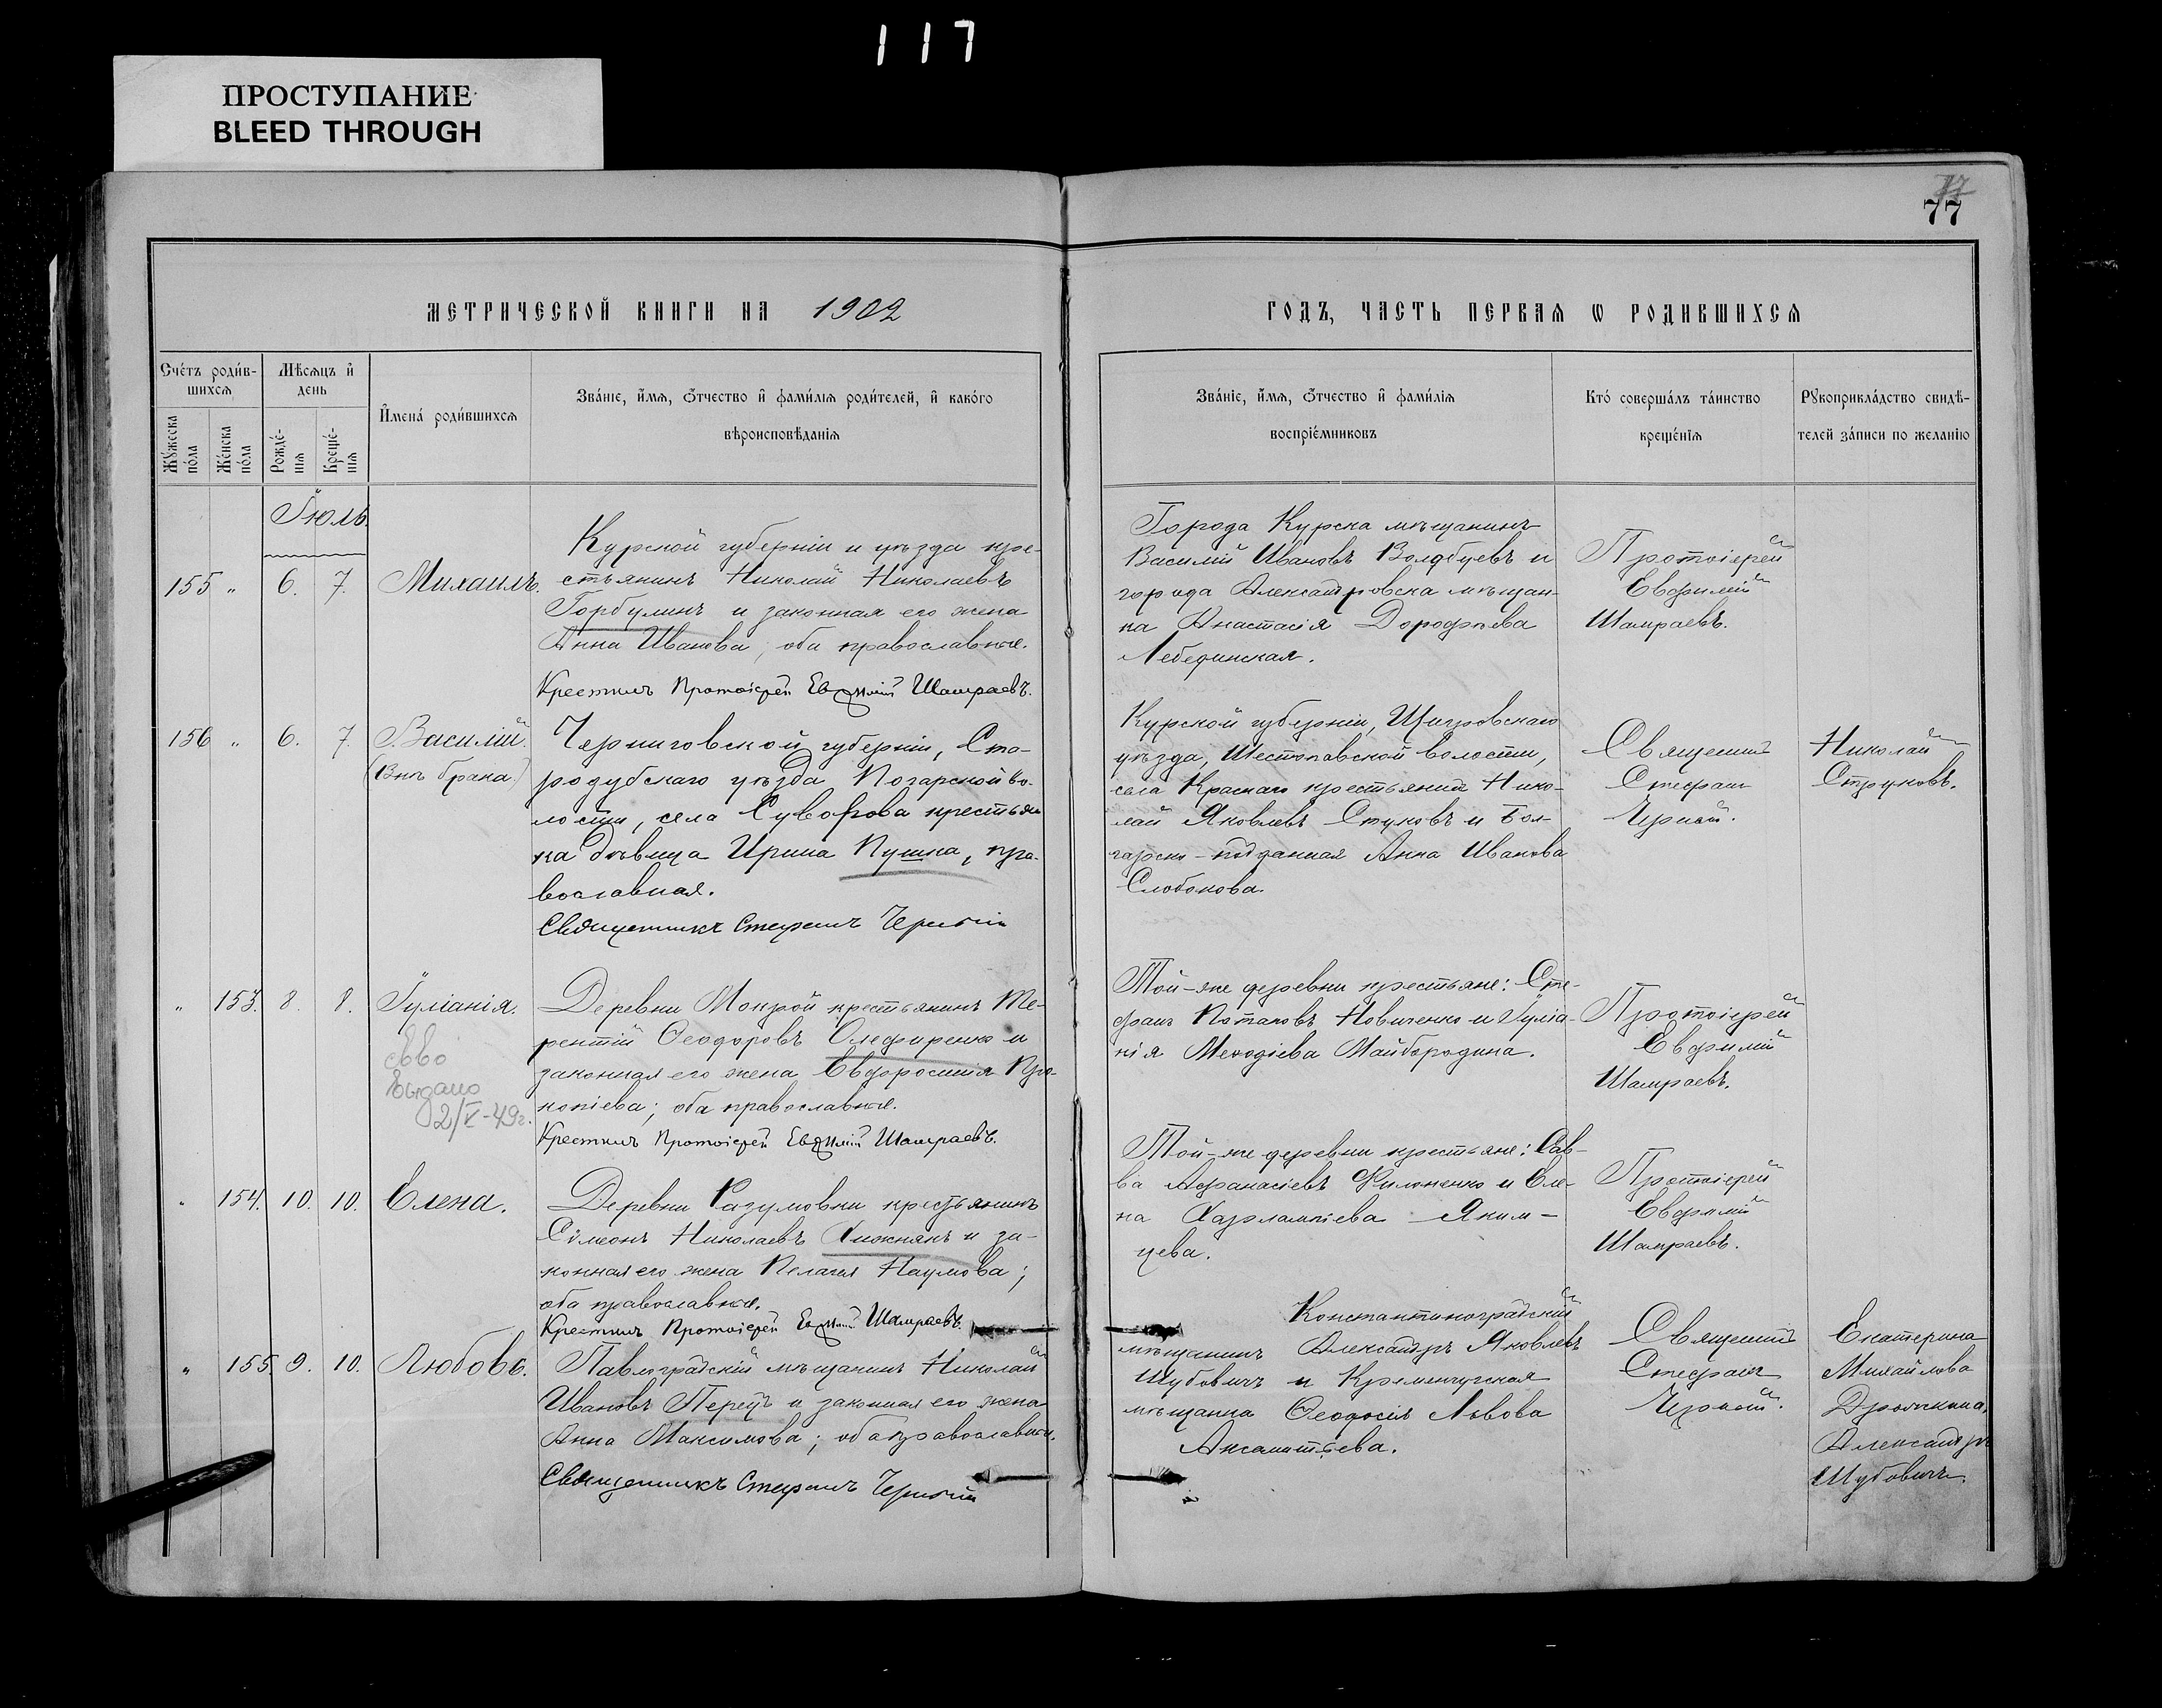 117
ПРОСТУПАНИЕ
BLEED THROUGH
77
77
МЕТРИЧЕСКОЙ КНИГИ НА 1902
ГОДЪ, ЧАСТЬ ПЕРВАЯ Ѡ РОДИВШИХСѦ
Сче́тъ роди́в-
шихсѧ
Мѣсѧцъ и҆
день
Мꙋ́жеска
по́ла
Же́нска
по́ла
Рожде́-
нїѧ
Креще́-
нїѧ
И҆мена̀ роди́вшихсѧ
Зва́нїе, и҆́мѧ, ѻ҆́тчество и҆ фами́лїѧ роди́телей, и҆ како́гѡ
вѣроисповѣ́данїѧ
Зва́нїе, и҆́мѧ, ѻ҆́тчество и҆ фами́лїѧ
воспрїе́мниковъ
Кто̀ соверша́лъ та́инство
креще́нїѧ
Рꙋкоприкла́дство свидѣ́-
телей за́писи по жела́нїю
Іюль.
155 " 6. 7. Михаилъ.
Курской губерніи и уѣзда кре-
стьянинъ Николай Николаевъ
Горбулинъ и законная его жена
Анна Иванова, оба православные.
Крестилъ Протоіерей Евѳимій Шамраевъ.
Города Курска мѣщанинъ
Василій Ивановъ и
города Александровска мѣщан-
ка Анастасія Дорофѣева
Лебединская.
Протоіерей
Евфимій
Шамраевъ.
156 " 6. 7. Василій.
(Внѣ брака)
Черниговской губерніи, Ста-
родубскаго уѣзда Погарской во-
лости, села Суворова крестьян
ка дѣвица Ирина Пушка, пра-
вославная.
Священникъ Стефанъ Черный
Курской губерніи, Щигровскаго
уѣзда, волости,
села Краснаго крестьянинъ Нико-
лай Яковлевъ Стуковъ и Бол-
гарско-подданная Анна Иванова
Слобокова.
Священник
Стефанъ
Черный.
Николай
Струковъ.
" 153. 8. 8. Іуліанія.
Выдано
2/V-49г.
Деревни Мокрой крестьянинъ Те-
рентій Ѳеодоровъ Олефиренко и
законная его жена Евфросинія Про-
копіева; оба православные.
Крестилъ Протоіерей Евѳимій Шамраевъ.
Той-же деревни крестьяне: Сте-
фанъ Потаповъ Новиченко и Іуліа-
нія Меѳодіева Майбородина.
Протоіерей
Евфимій
Шамраевъ.
" 154. 10. 10. Елена.
Деревни Разумовки крестьянинъ
Сѵмеонъ Николаевъ Хижнякъ и за-
конная его жена Пелагія Наумова;
оба православные.
Крестилъ Протоіерей Евѳимій Шамраевъ.
Той-же деревни крестьяне: Сав-
ва Афанасіевъ Филоненко и Еле-
на Харлампіева Яким-
цева.
Протоіерей
Евфимій
Шамраевъ.
" 155. 9. 10. Любовь.
Павлоградскій мѣщанинъ Николай
Ивановъ Перецъ и законная его жена
Анна Максимова; оба православные.
Священникъ Стефанъ Черный
Константиноградскій
мѣщанинъ Александръ Яковлевъ
Шубовичъ и Кременчугская
мѣщанка Ѳеодосія Львова
Священник
Стефанъ
Черный.
Екатерина
Михайлова
Александръ
Шубовичъ.